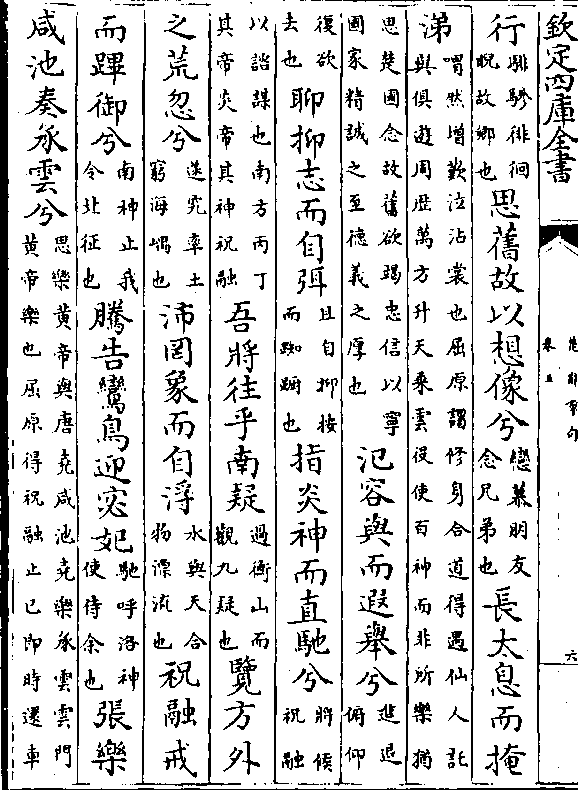 欽定四庫全書
楚辭章句
卷五
六
行騑驂徘徊睨故鄉也思舊故以想像兮戀慕朋友念兄弟也長太息而掩
涕喟然增歎泣沾裳也屈原謂修身合道得遇仙人託與俱遊周歴萬方升天乘雲役使百神而非所樂猶
思楚國念故舊欲竭忠信以寧國家精誠之至德義之厚也氾容與而遐舉兮進退俯仰
復欲去也聊抑志而自弭且自抑按而踟蹰也指炎神而直馳兮將候祝融
以諮謀也南方丙丁其帝炎帝其神祝融吾將往乎南疑過衡山而觀九疑也覽方外
之荒忽兮遂究率土窮海嵎也沛罔象而自浮水與天合物漂流也祝融戒
而蹕御兮南神止我令北征也騰告鸞鳥迎宓妃馳呼洛神使侍余也張樂
咸池奏承雲兮思樂黄帝與唐堯咸池堯樂承雲雲門黄帝樂也屈原得祝融止已即時還車